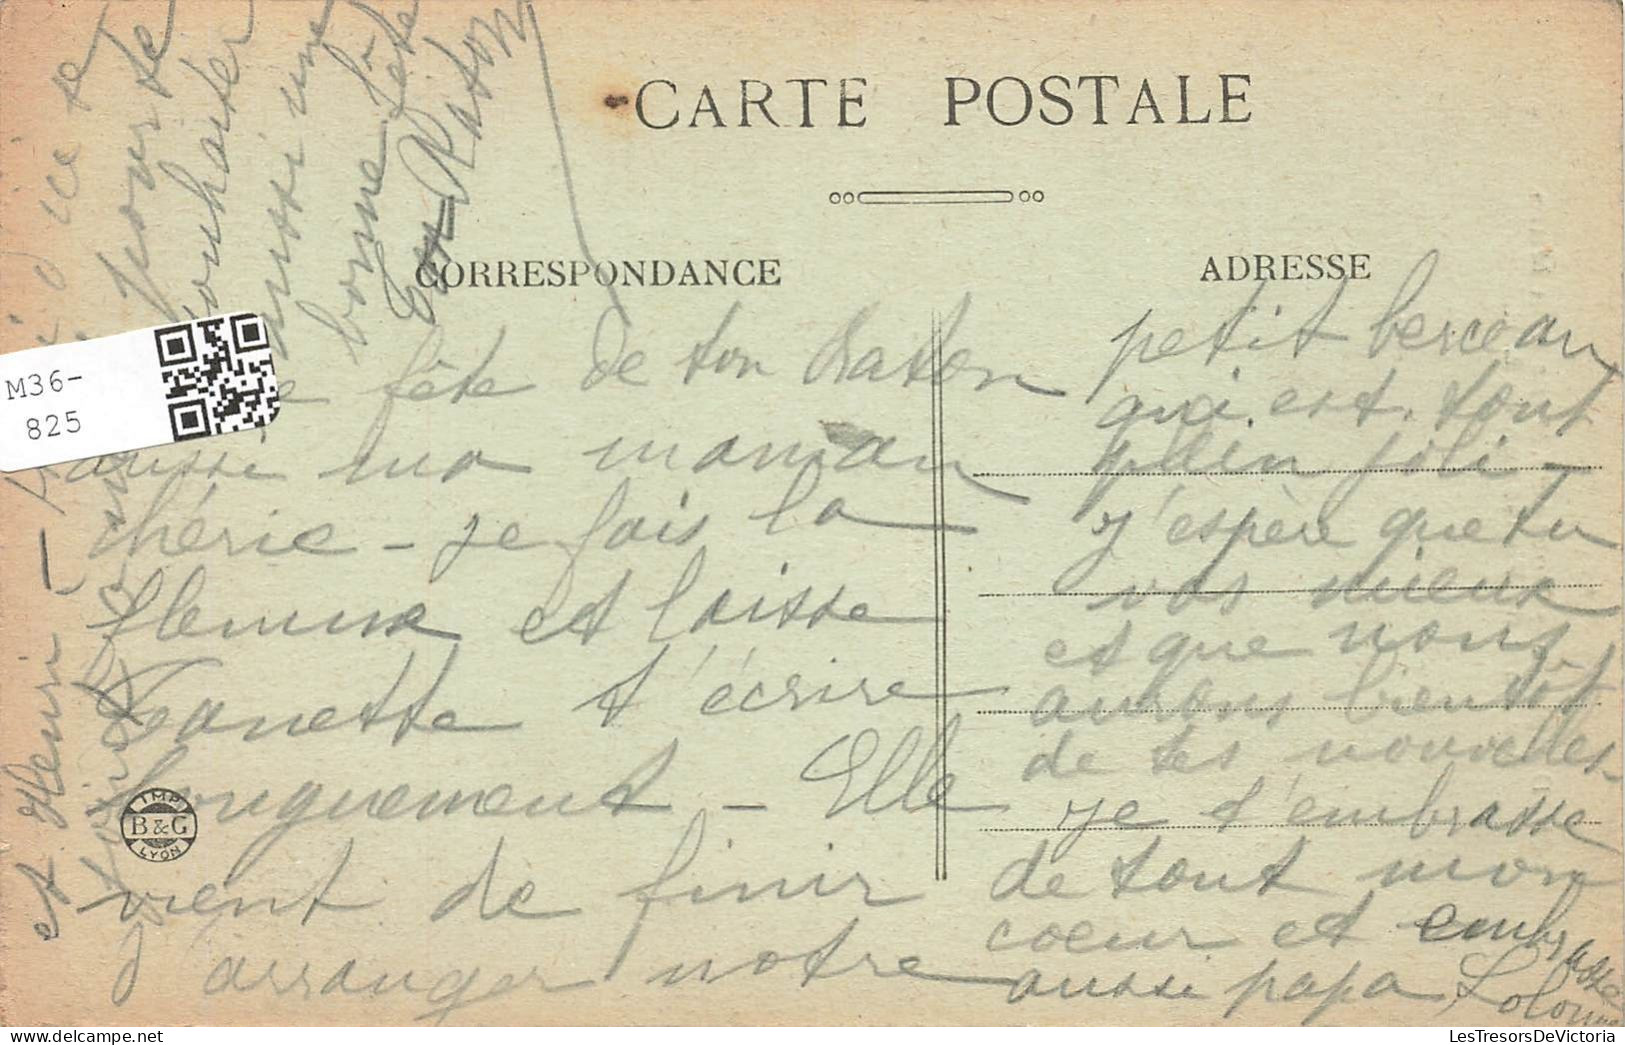 CARTE POSTALE
CORRESPONDANCE
ADRESSE
M36-
825
fête de ton Raton
aussi ma maman
chérie - je fais la
flemme et laisse
Jeanette t'écrire
longuement - Elle
vient de finir
d'arranger notre
petit berceau
qui est tout
plein joli -
J'espère que tu
vas mieux
et que nous
aurons bientôt
de tes nouvelles
je t'embrasse
de tout mon
coeur et embrasse
aussi papa
et Henri -
ici
te
souhaiter
aussi une
bonne fête
ton Raton
IMP
B&G
LYON
LesTresorsDeVictoria